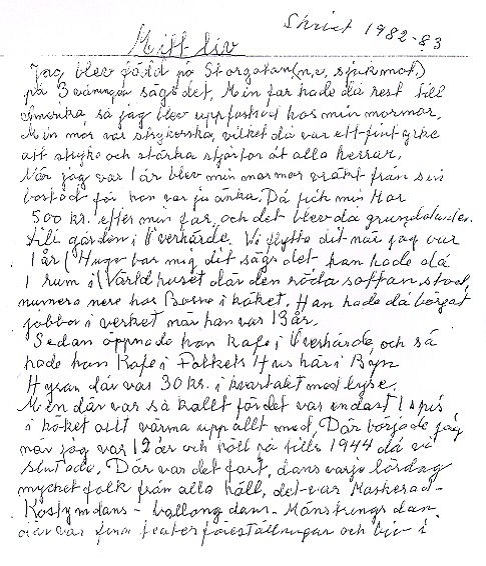 Skrivet 1982-83
Mitt liv
Jag blev född på Storgatan (n.v. sjukmot.)
på 3 våningen sägs det. Min far hade då rest till
Amerika, så jag blev uppfostrad hos min mormor.
Min mor var strykerska, vilket då var ett fint yrke
att stryka och stärka skjortor åt alla herrar.
När jag var 1 år blev min mormor vräkt från sin
bostad för hon var ju änka. Då fick min Mor
500 kr. efter min far, och det blev då grunden
till gården i Överhärde. Vi flytta dit när jag var
1 år (Hugo bar mig dit sägs det han hade då
1 rum i Världhuset där den röda soffan stod,
numera nere hos Bosse i köket. Han hade då börjat
jobba i verket när han var 13 år.
Sedan öppnade hon Kafe i Överhärde, och så
hade hon Kafe i Folkets Hus här i Byn
Hyran där var 30 kr. i kvartalet med lyse.
Men där var så kallt för det var endast 1 spis
i köket att värma upp allt med. Där började jag
när jag var 12 år och höll på tills 1944 då vi
slutade. Där var det fart, dans varje lördag
mycket folk från alla håll, det var Maskerad-
Kostymdans - ballong dans - Månskens dans
där var fina teaterföreställningar och liv i